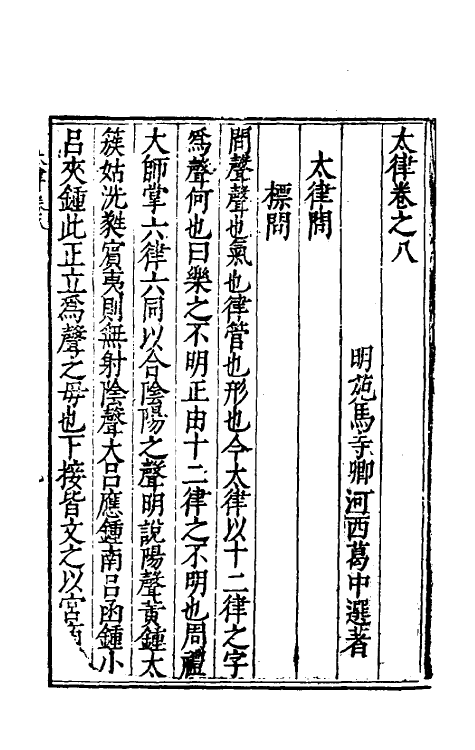 太律卷之八
明苑馬寺卿河西葛中選著
太律問
標問
問聲聲也氣也律管也形也今太律以十二律之字
爲聲何也曰樂之不明正由十二律之不明也周禮
大師掌六律六同以合陰陽之聲明說陽聲黃鍾太
簇姑洗蕤賓夷則無射陰聲大呂應鍾南呂函鍾小
呂夾鍾此正立爲聲之毋也下接皆文之以宮